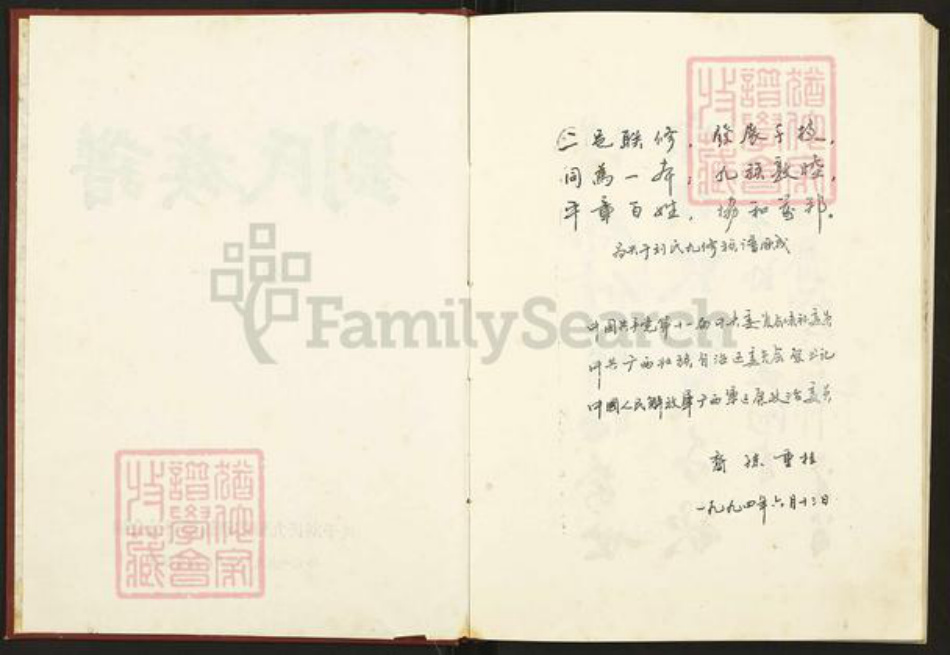 劉氏族譜
二邑联修，發展于梅，
同為一本，九族敦睦，
平章百姓，協和萬邦。
刘氏九修族譜
中国共产党第十一届中央委员会候补委员
中共广西壮族自治区委员会书记
中國人民解放軍广西軍区政治委员
裔孫重桂
一九九四年六月十二日
猶他家譜學會收藏
猶他家譜學會收藏
FamilySearch